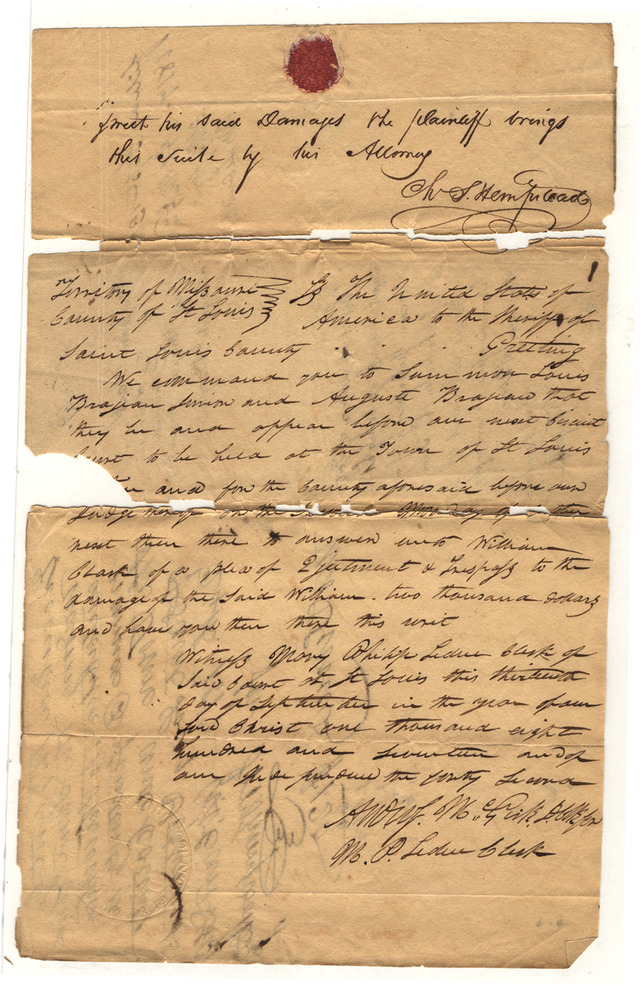 his said Damages the plaintiff brings
this Suite by his Attorney
S. Hempstead
Territory of Missouri
County of St Louis
The United States of
America to the Sheriff of
Saint Louis County Greeting
We command you to Summon Louis
Brazeau and Auguste Brazeau that
they be and appear before our next Circuit
Court to be held at the Town of St Louis
and for the County aforesaid before our
Judge thereof on the Monday
next then there to answer unto William
Clark of a plea of Ejectment & Trespass to the
damage of the Said William two thousand dollars
and have you then there this writ
Witness Mary Philip Leduc Clerk of
Said Court at St Louis this thirteenth
day of September in the year of our
Lord Christ one thousand eight
hundred and Seventeen and of
our Independence the forty Second
M. P. Leduc Clerk